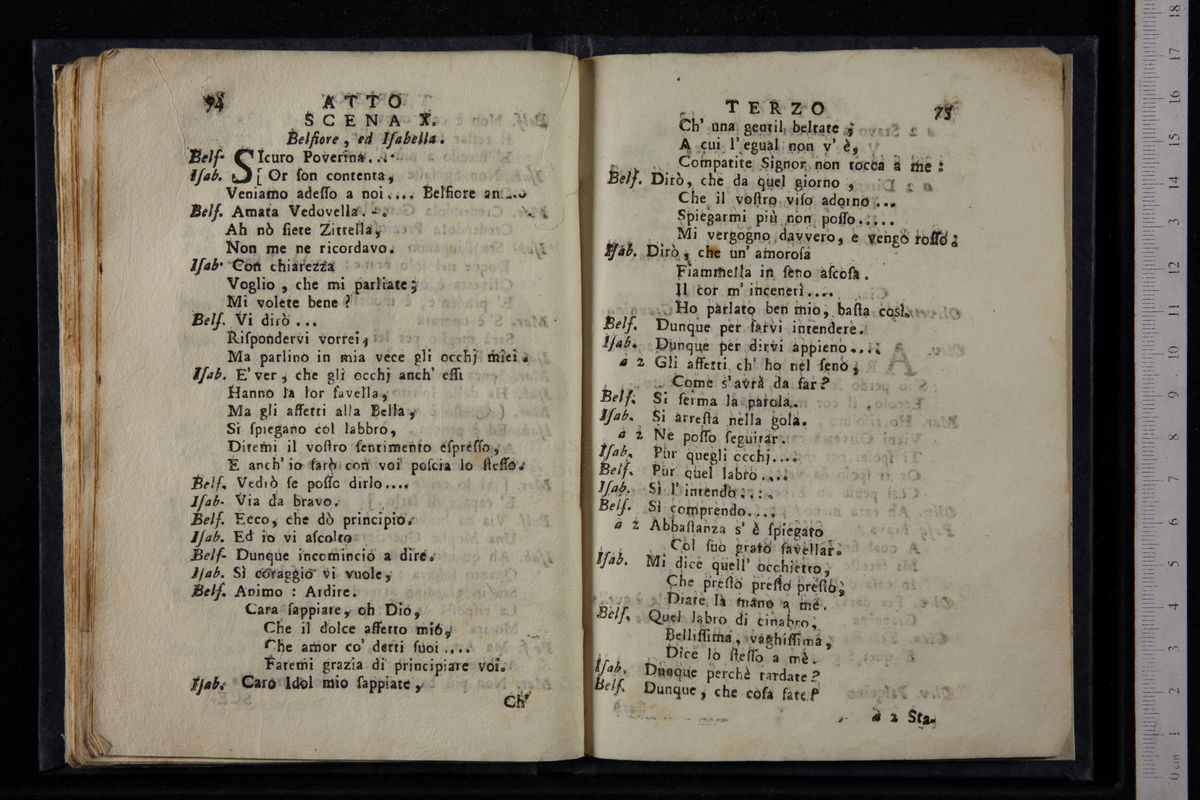 74 ATTO
SCENA X.
Belfiore, ed Iſabella.
Belf. SIcuro Poverina....
Iſab. Sì Or ſon contenta,
Veniamo adeſſo a noi.... Belfiore
Belf. Amata Vedovella...
Ah nò ſiete Zittella,
Non me ne ricordavo.
Iſab. Con chiarezza
Voglio, che mi parliate;
Mi volete bene?
Belf. Vi dirò...
Riſpondervi vorrei,
Ma parlino in mia vece gli occhj miei.
Iſab. E' ver, che gli occhj anch' eſſi
Hanno la lor favella,
Ma gli affetti alla Bella,
Si ſpiegano col labbro,
Diremi il voſtro ſentimento eſpreſſo,
E anch' io farò con voi poſcia lo ſteſſo.
Belf. Vedrò ſe poſſo dirlo....
Iſab. Via da bravo.
Belf. Ecco, che dò principio.
Iſab. Ed io vi aſcolto
Belf. Dunque incomincio a dire.
Iſab. Sì coraggio vi vuole,
Belf. Animo: Ardire.
Cara ſappiate, oh Dio,
Che il dolce affetto mio,
Che amor co' detti ſuoi....
Faremi grazia di principiare voi.
Iſab. Caro Idol mio ſappiate,
Ch'
TERZO 75
Ch' una gentil beltate,
A cui l'egual non v' è,
Compatite Signor non tocca a me:
Belf. Dirò, che da quel giorno,
Che il voſtro viſo adorno...
Spiegarmi più non poſſo.....
Mi vergogno davvero, e vengo roſſo.
Iſab. Dirò, che un' amoroſa
Fiammella in ſeno aſcoſa.
Il cor m' incenerì....
Ho parlato ben mio, baſta così.
Belf. Dunque per farvi intendere.
Iſab. Dunque per dirvi appieno....
a 2 Gli affetti ch' ho nel ſeno,
Come s'avrà da far?
Belf. Si ferma la parola.
Iſab. Si arreſta nella gola.
a 2 Nè poſſo ſeguitar.
Iſab. Pur quegli occhj....
Belf. Pur quel labro....
Iſab. Sì l' intendo....
Belf. Sì comprendo....
a 2 Abbaſtanza s' è ſpiegato
Col ſuo grato favellar.
Iſab. Mi dice quell' occhietto,
Che preſto preſto preſto,
Diate la mano a me.
Belf. Quel labro di cinabro,
Belliſſima, vaghiſſima,
Dice lo ſteſſo a mè.
Iſab. Dunque perchè tardate?
Belf. Dunque, che coſa fate?
a 2 Sta-